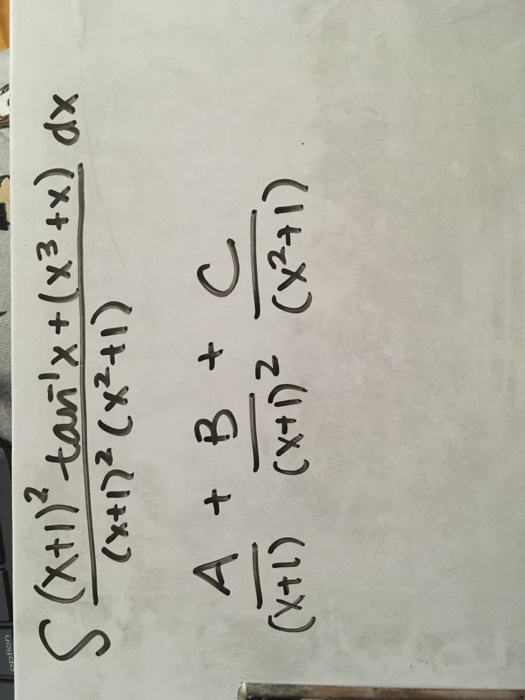 ∫ (x+1)² tan⁻¹x + (x³+x) dx
(x+1)² (x²+1)
A + B + C
(x+1) (x+1)² (x²+1)
option